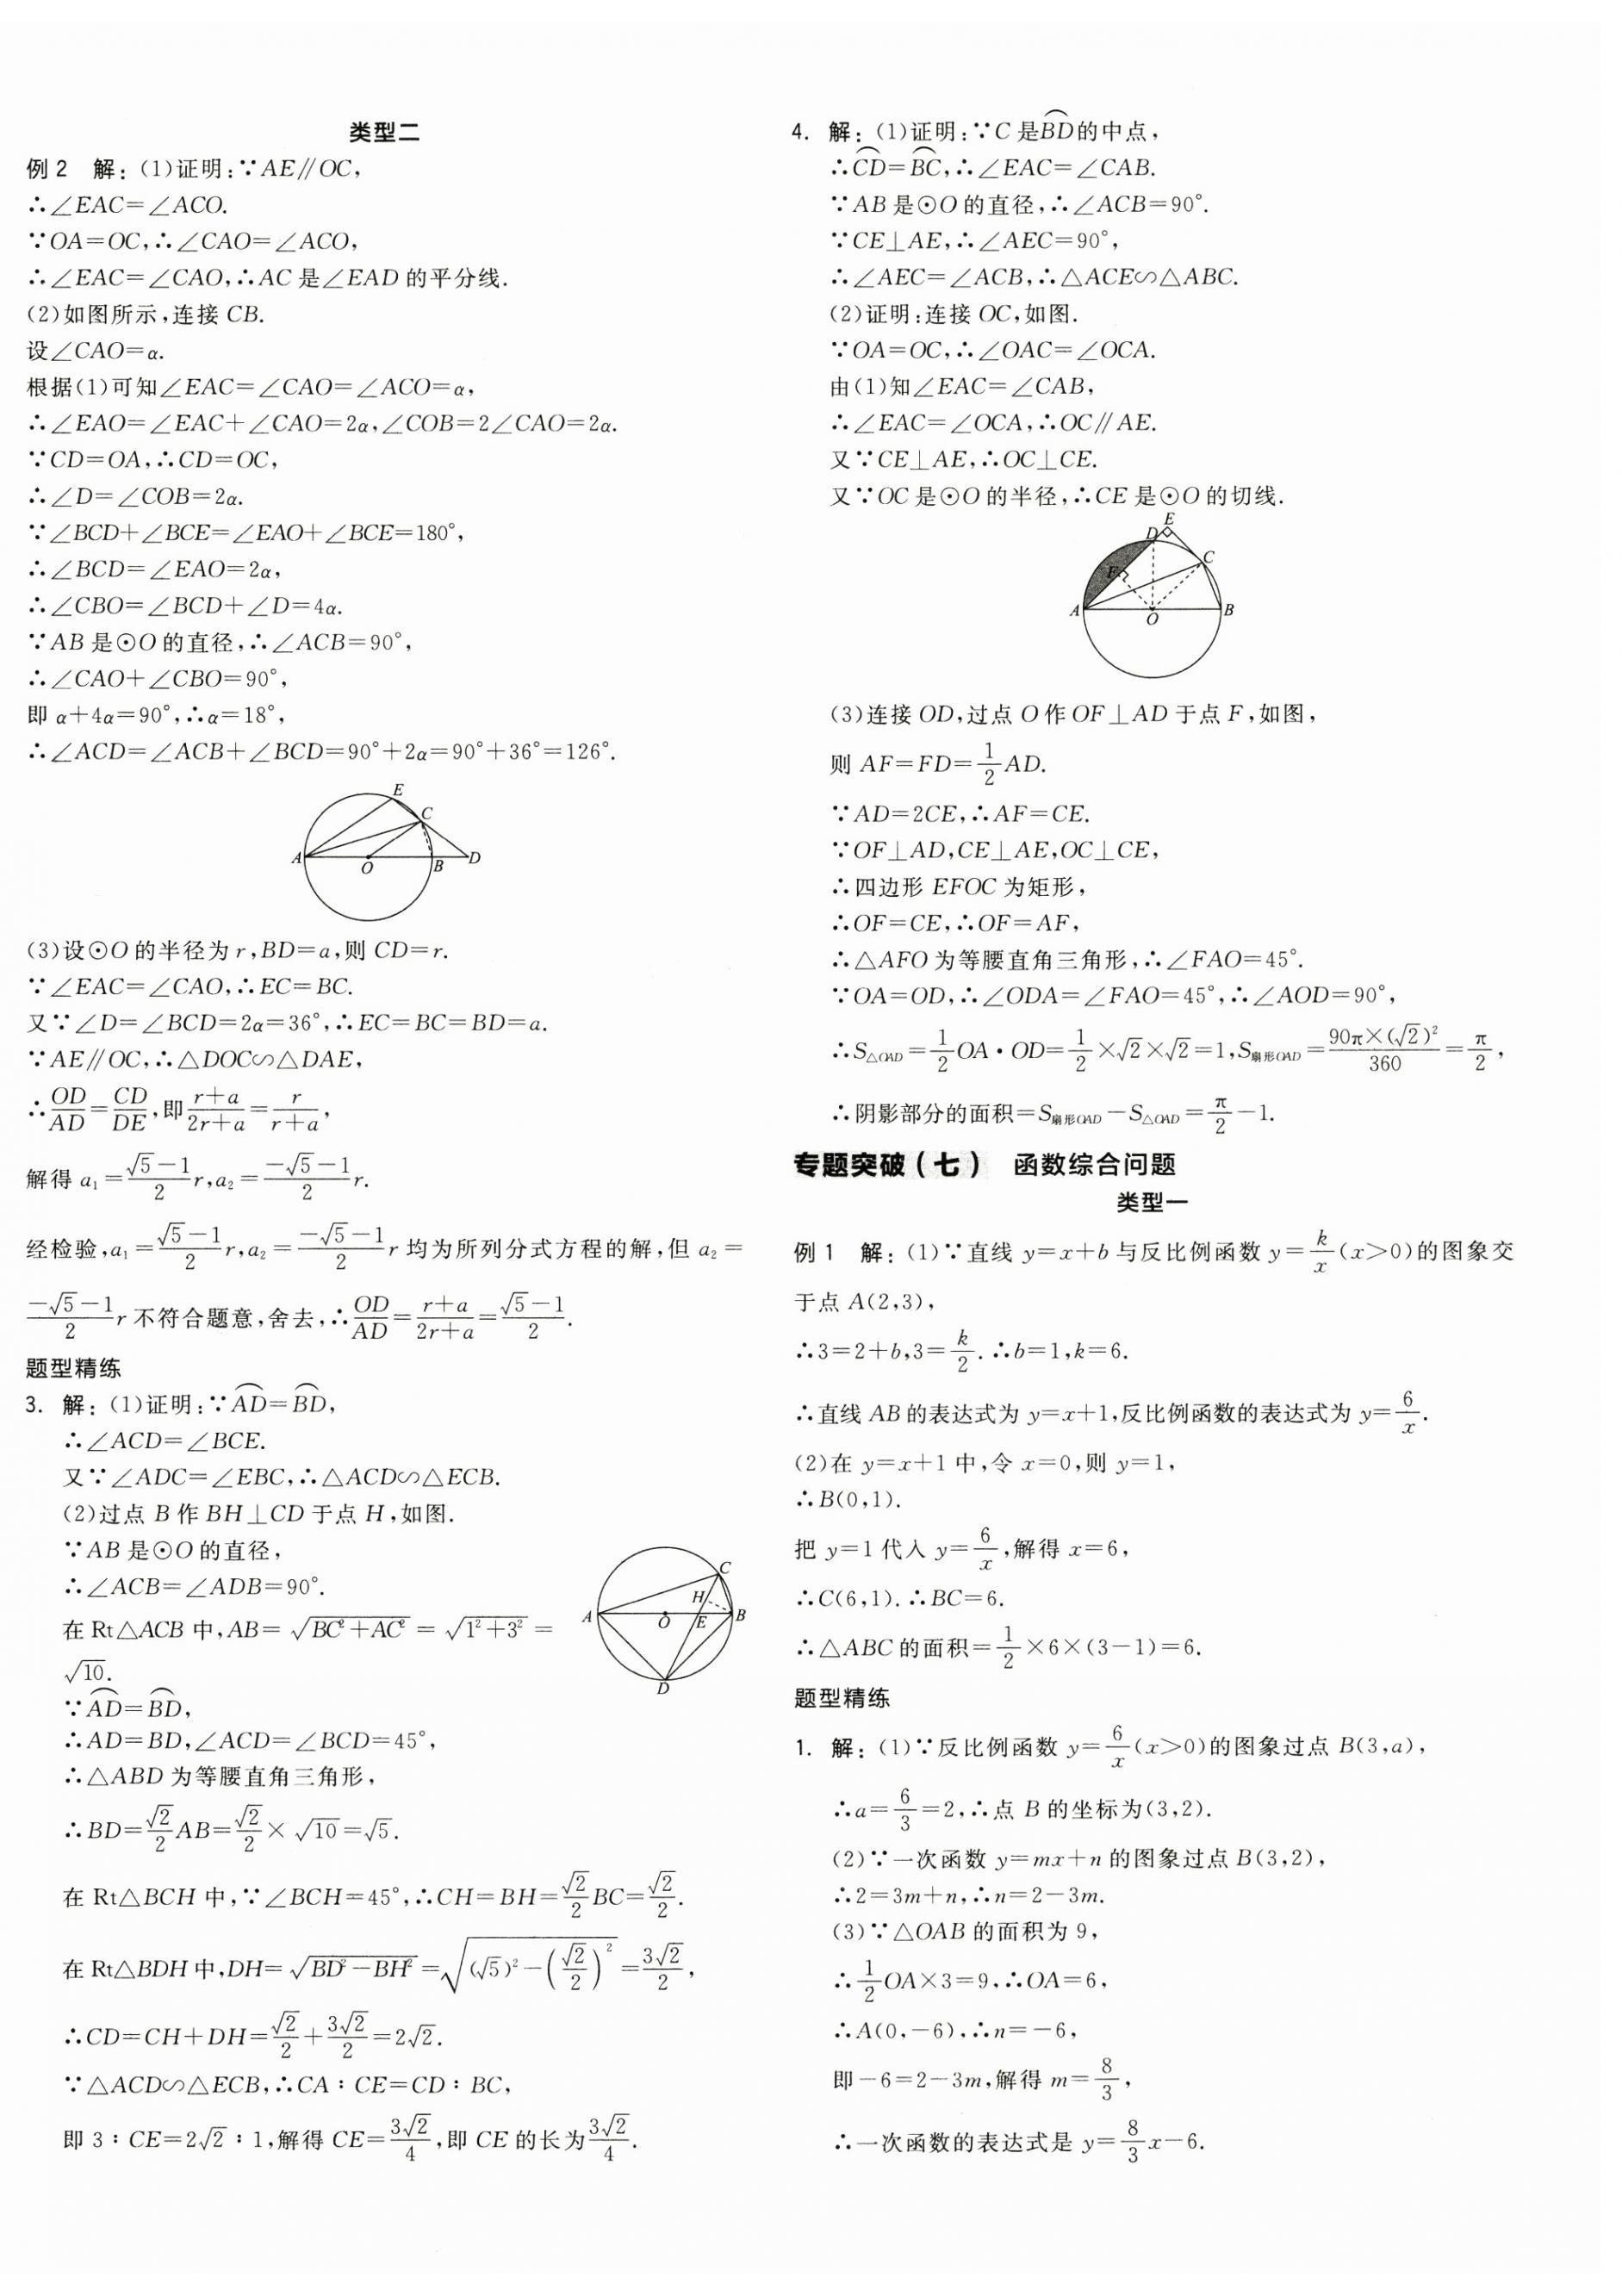 类型二
例2 解:(1)证明:∵AE∥OC,
∴∠EAC=∠ACO.
∵OA=OC,∴∠CAO=∠ACO,
∴∠EAC=∠CAO,∴AC是∠EAD的平分线.
(2)如图所示,连接CB.
设∠CAO=α.
根据(1)可知∠EAC=∠CAO=∠ACO=α,
∴∠EAO=∠EAC+∠CAO=2α,∠COB=2∠CAO=2α.
∵CD=OA,∴CD=OC,
∴∠D=∠COB=2α.
∵∠BCD+∠BCE=∠EAO+∠BCE=180°,
∴∠BCD=∠EAO=2α,
∴∠CBO=∠BCD+∠D=4α.
∵AB是⊙O的直径,∴∠ACB=90°,
∴∠CAO+∠CBO=90°,
即α+4α=90°,∴α=18°,
∴∠ACD=∠ACB+∠BCD=90°+2α=90°+36°=126°.
E
C
A
O
B
D
(3)设⊙O的半径为r,BD=a,则CD=r.
∵∠EAC=∠CAO,∴EC=BC.
又∵∠D=∠BCD=2α=36°,∴EC=BC=BD=a.
∵AE∥OC,∴△DOC∽△DAE,
∴OD/AD=CD/DE,即(r+a)/(2r+a)=r/(r+a),
解得a₁=(√5-1)/2 r,a₂=(-√5-1)/2 r.
经检验,a₁=(√5-1)/2 r,a₂=(-√5-1)/2 r均为所列分式方程的解,但a₂=
(-√5-1)/2 r不符合题意,舍去,∴OD/AD=(r+a)/(2r+a)=(√5-1)/2.
题型精练
3. 解:(1)证明:∵AD⌒=BD⌒,
∴∠ACD=∠BCE.
又∵∠ADC=∠EBC,∴△ACD∽△ECB.
(2)过点B作BH⊥CD于点H,如图.
∵AB是⊙O的直径,
∴∠ACB=∠ADB=90°.
在Rt△ACB中,AB=√(BC²+AC²)=√(1²+3²)=
√10.
C
H
A
O
E
B
D
∵AD⌒=BD⌒,
∴AD=BD,∠ACD=∠BCD=45°,
∴△ABD为等腰直角三角形,
∴BD=√2/2 AB=√2/2×√10=√5.
在Rt△BCH中,∵∠BCH=45°,∴CH=BH=√2/2 BC=√2/2.
在Rt△BDH中,DH=√(BD²-BH²)=√((√5)²-(√2/2)²)=3√2/2,
∴CD=CH+DH=√2/2+3√2/2=2√2.
∵△ACD∽△ECB,∴CA∶CE=CD∶BC,
即3∶CE=2√2∶1,解得CE=3√2/4,即CE的长为3√2/4.
4. 解:(1)证明:∵C是BD⌒的中点,
∴CD⌒=BC⌒,∴∠EAC=∠CAB.
∵AB是⊙O的直径,∴∠ACB=90°.
∵CE⊥AE,∴∠AEC=90°,
∴∠AEC=∠ACB,∴△ACE∽△ABC.
(2)证明:连接OC,如图.
∵OA=OC,∴∠OAC=∠OCA.
由(1)知∠EAC=∠CAB,
∴∠EAC=∠OCA,∴OC∥AE.
又∵CE⊥AE,∴OC⊥CE.
又∵OC是⊙O的半径,∴CE是⊙O的切线.
E
D
C
F
A
O
B
(3)连接OD,过点O作OF⊥AD于点F,如图,
则AF=FD=1/2 AD.
∵AD=2CE,∴AF=CE.
∵OF⊥AD,CE⊥AE,OC⊥CE,
∴四边形EFOC为矩形,
∴OF=CE,∴OF=AF,
∴△AFO为等腰直角三角形,∴∠FAO=45°.
∵OA=OD,∴∠ODA=∠FAO=45°,∴∠AOD=90°,
∴S△OAD=1/2 OA·OD=1/2×√2×√2=1,S扇形OAD=90π×(√2)²/360=π/2,
∴阴影部分的面积=S扇形OAD-S△OAD=π/2-1.
专题突破(七) 函数综合问题
类型一
例1 解:(1)∵直线y=x+b与反比例函数y=k/x(x>0)的图象交
于点A(2,3),
∴3=2+b,3=k/2.∴b=1,k=6.
∴直线AB的表达式为y=x+1,反比例函数的表达式为y=6/x.
(2)在y=x+1中,令x=0,则y=1,
∴B(0,1).
把y=1代入y=6/x,解得x=6,
∴C(6,1).∴BC=6.
∴△ABC的面积=1/2×6×(3-1)=6.
题型精练
1. 解:(1)∵反比例函数y=6/x(x>0)的图象过点B(3,a),
∴a=6/3=2,∴点B的坐标为(3,2).
(2)∵一次函数y=mx+n的图象过点B(3,2),
∴2=3m+n,∴n=2-3m.
(3)∵△OAB的面积为9,
∴1/2 OA×3=9,∴OA=6,
∴A(0,-6),∴n=-6,
即-6=2-3m,解得m=8/3,
∴一次函数的表达式是y=8/3 x-6.